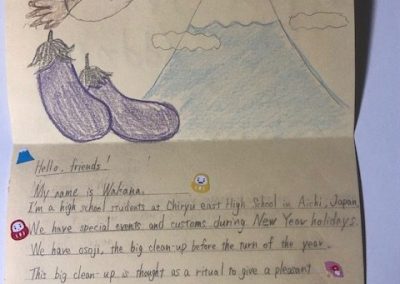 Hello, friends!
My name is Wakana.
I'm a high school students at Chiryu east High School in Aichi, Japan.
We have special events and customs during New Year holidays.
We have osoji, the big clean-up before the turn of the year.
This big clean-up is thought as a ritual to give a pleasant